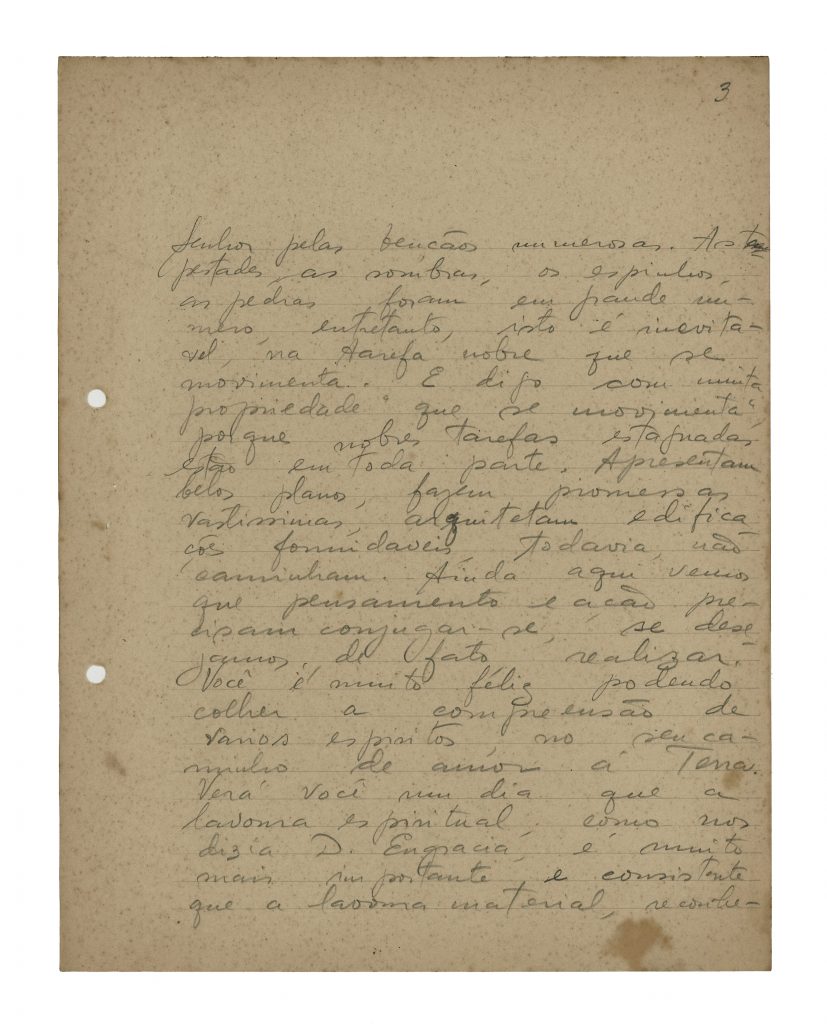 3
Senhor pelas bençãos numerosas. As tem
pestades, as sombras, os espinhos,
as pedras foram em grande nú-
mero, entretanto, isto é inevitá-
vel, na tarefa nobre que se
movimenta. E digo com muita
propriedade "que se movimenta",
porque nobres tarefas estagnadas
estão em toda parte. Apresentam
belos planos, fazem promessas
vastissimas, arquitetam edifica
ções formidaveis, todavia, não
caminham. Ainda aqui vemos
que pensamento e acão pre-
cisam conjugar-se, se dese
jamos, de fato, realizar.
Você é muito feliz podendo
colher a compreensão de
varios espiritos, no seu ca-
minho de amor á Terra.
Verá você um dia que a
lavoura espiritual, como nos
dizia D. Engracia, é muito
mais importante e consistente
que a lavoura material, reconhe-